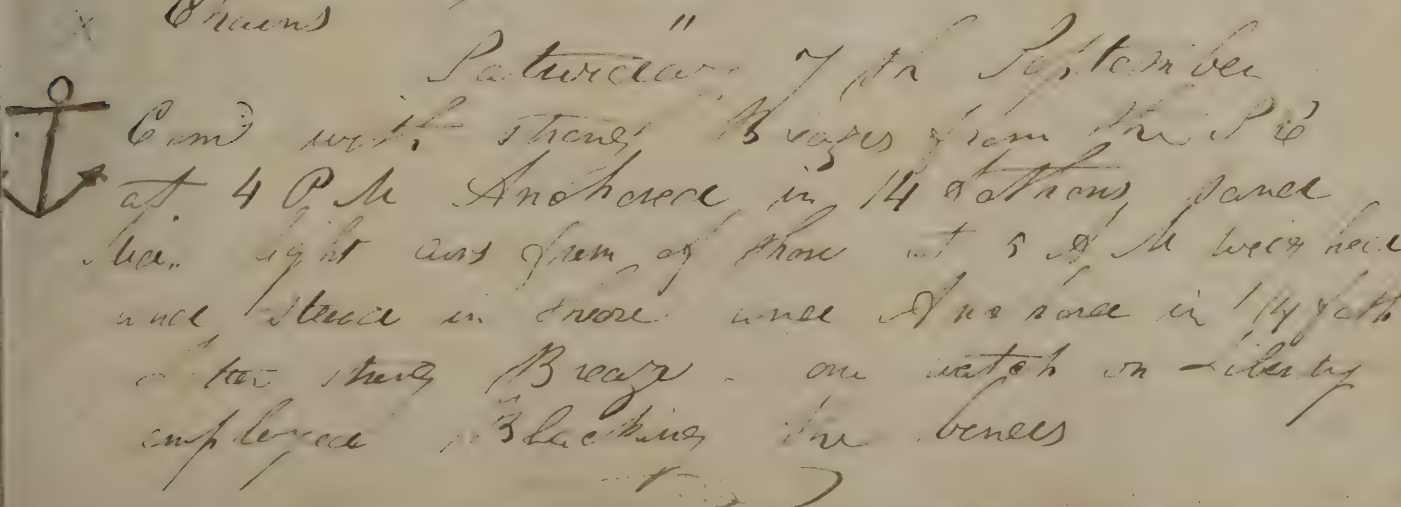 Chains
"
Saturday 7 th September
Comd with strong Breazes from the
at 4 P M Anchored in 14 Fathoms
light airs from of shore at 5 A M weighed
and stead in shore and Anchored in 14 fath
strong Breaze one watch on Liberty
employed Blacking the bends